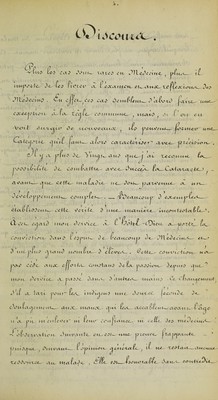 Discours.
Plus les cas sont rares en Médecine, plus il
importe de les livrer à l'examen et aux réflexions des
Médecins. En effet, ces cas semblent d'abord faire une
exception à la règle commune, mais, si l'on en
voit surgir de nouveaux, ils peuvent former une
Catégorie qu'il faut alors caractériser avec précision.
Il y a plus de vingt ans que j'ai reconnu la
possibilité de combattre avec succès la Cataracte,
avant que cette maladie ne soit parvenue à un
développement complet. Beaucoup d'exemples
établissent cette vérité d'une manière incontestable.
A cet égard mon service à l'hôtel-Dieu a porté la
conviction dans l'esprit de beaucoup de Médecins et
d'un plus grand nombre d'élèves. Cette conviction n'a
pas cédé aux efforts tentés de la passion depuis que
mon service a passé dans d'autres mains. Ce changement,
s'il a tari pour les indigens une source féconde de
soulagement aux maux qui les accablent avant l'âge
n'a pu m'enlever ni leur confiance ni celle des médecins.
L'observation suivante en est une preuve frappante
puisque, suivant l'opinion générale, il ne restait aucune
ressource au malade. Elle est honorable sans contredit